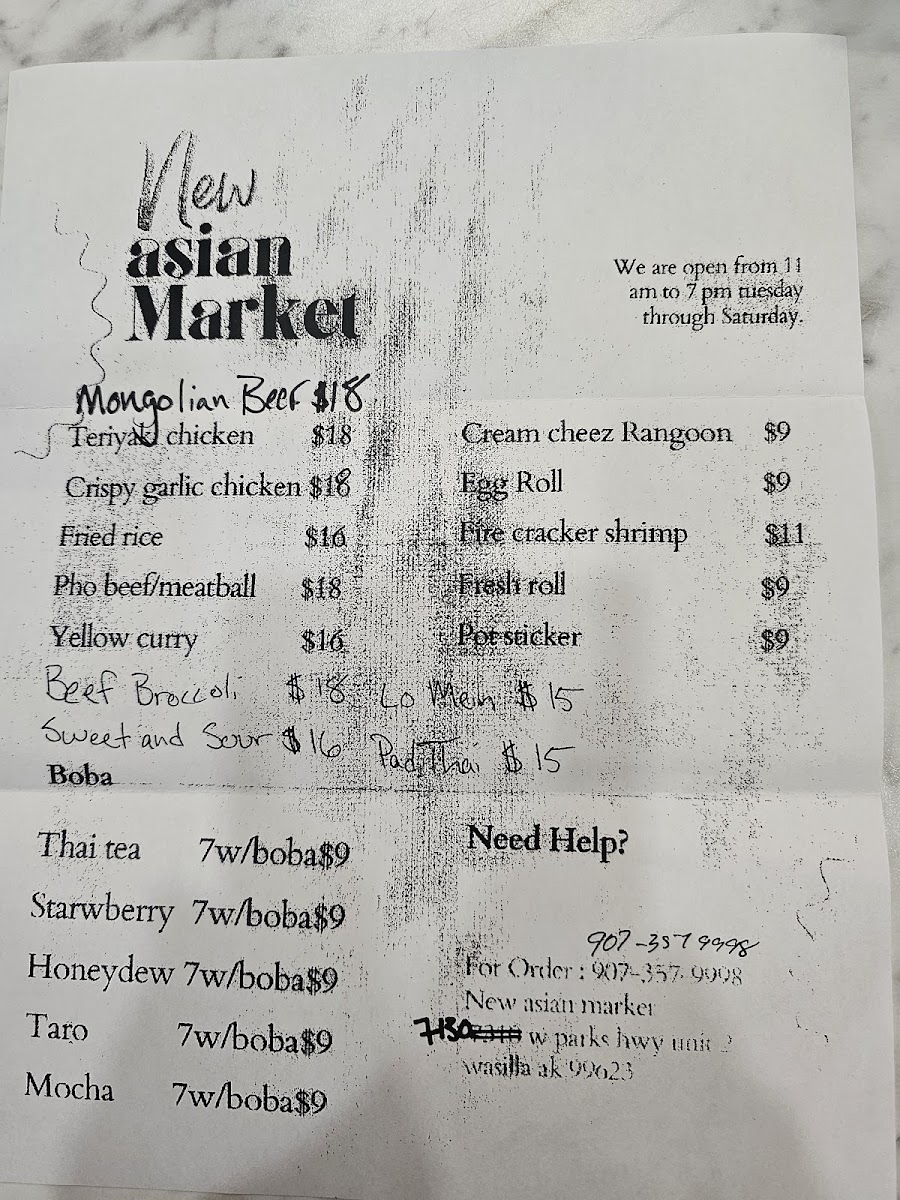 New
asian
Market
We are open from 11
am to 7 pm tuesday
through Saturday.
Mongolian Beef $18
Teriyaki chicken $18
Crispy garlic chicken $18
Fried rice $16
Pho beef/meatball $18
Yellow curry $16
Beef Broccoli $18
Sweet and Sour $16
Cream cheez Rangoon $9
Egg Roll $9
Fire cracker shrimp $11
Fresh roll $9
Pot sticker $9
Lo Mein $15
Pad Thai $15
Boba
Thai tea 7w/boba$9
Starwberry 7w/boba$9
Honeydew 7w/boba$9
Taro 7w/boba$9
Mocha 7w/boba$9
Need Help?
907-357 9998
For Order : 907-357-9998
New asian market
7130 w parks hwy unit 2
wasilla ak 99623